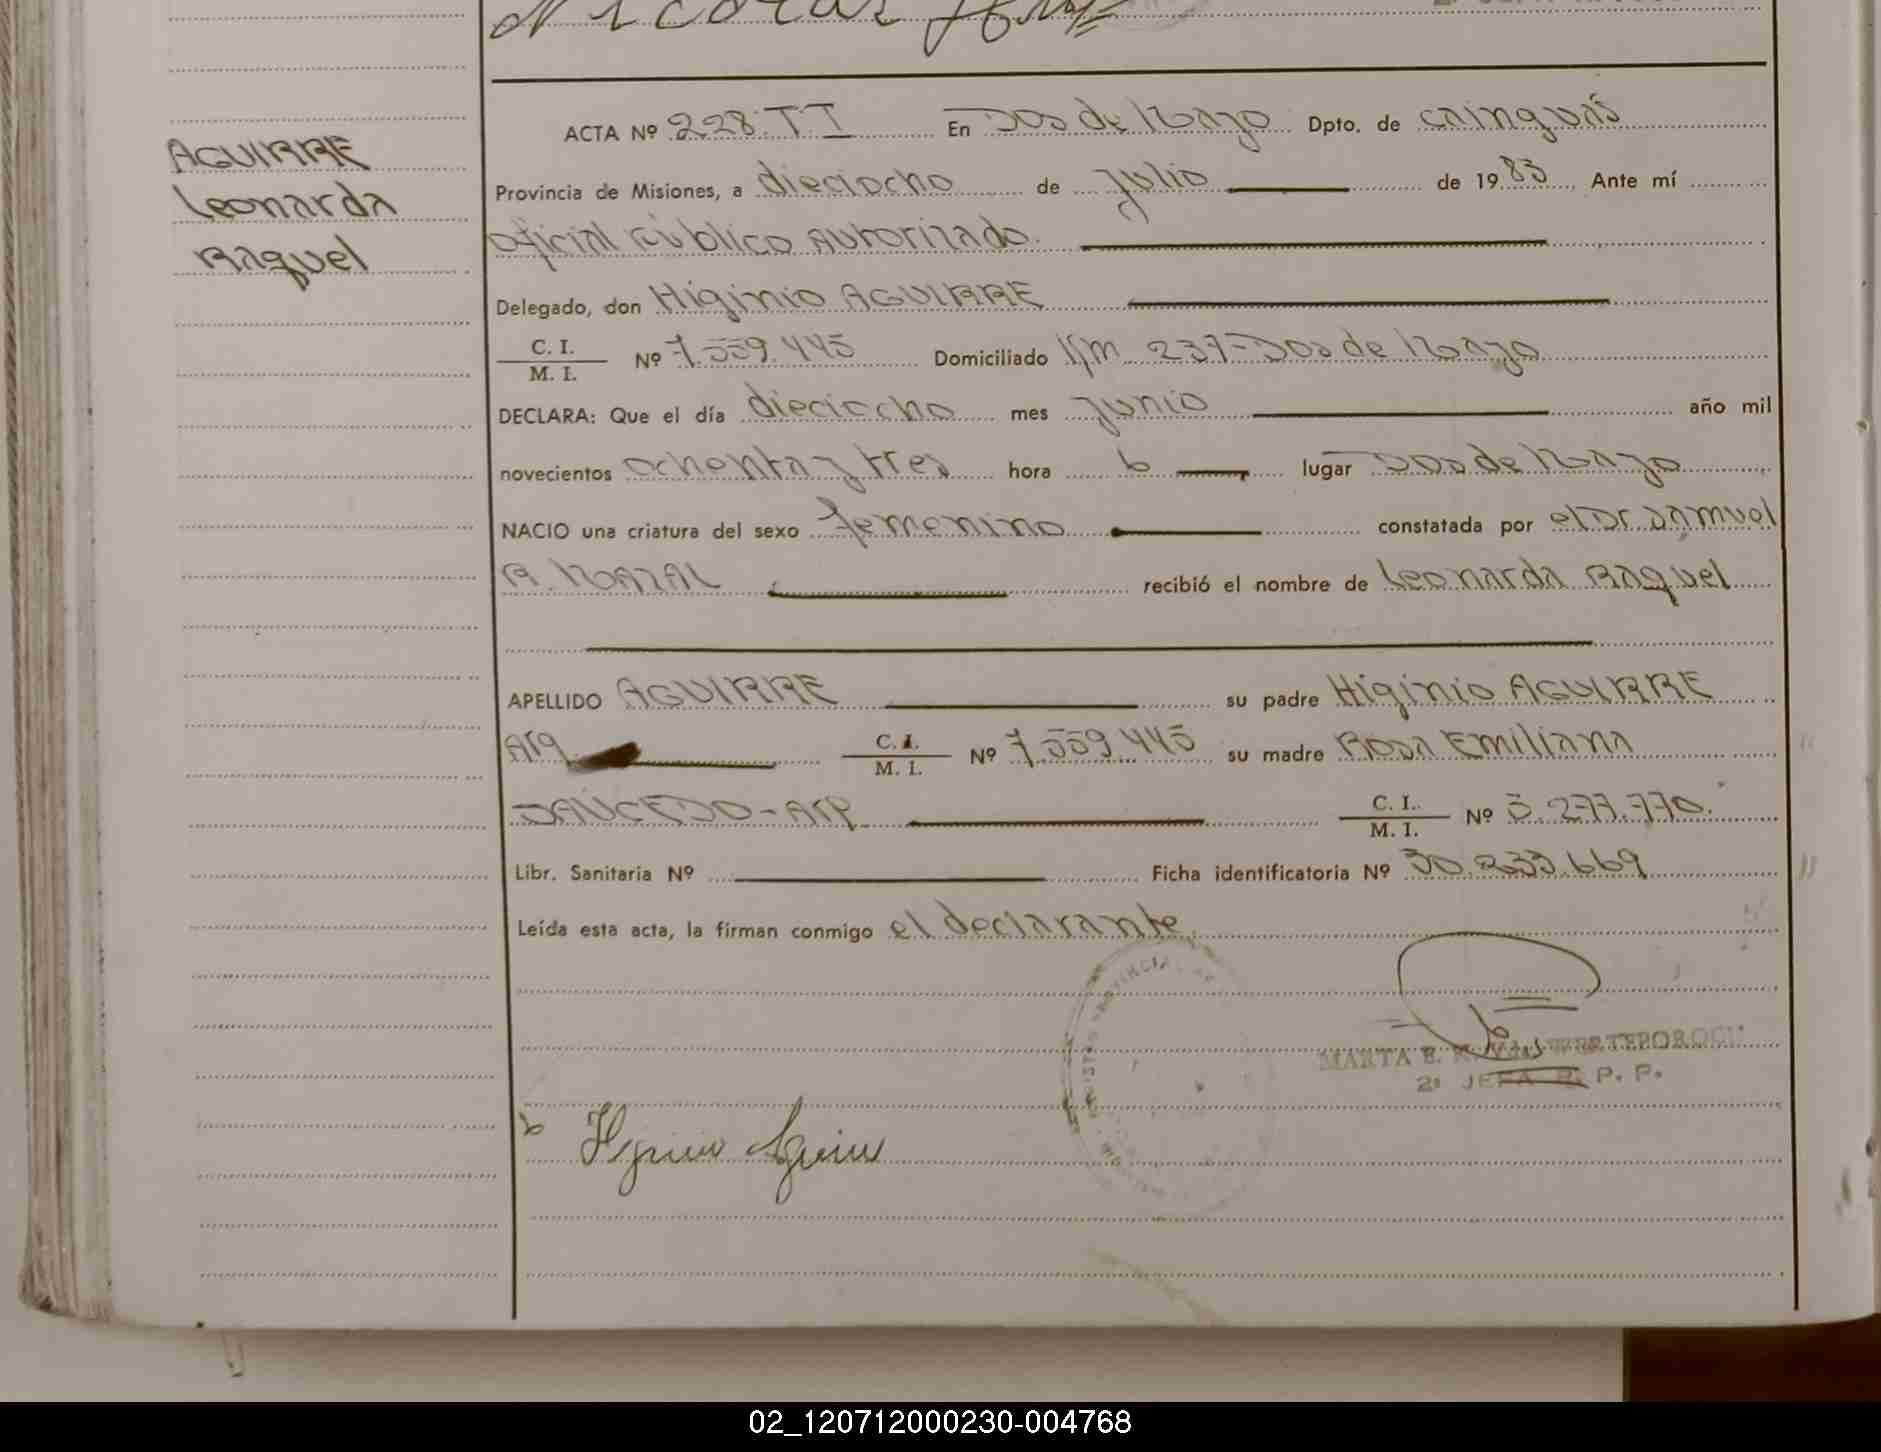 ACTA Nº 228. T I En Dos de Mayo Dpto. de Cainguás
AGUIRRE
Leonarda
Raquel
Provincia de Misiones, a dieciocho de Julio de 1983, Ante mí
Oficial Público Autorizado.
Delegado, don Higinio AGUIRRE
C. I.
M. I. Nº 7.559.445 Domiciliado Km 237-Dos de Mayo
DECLARA: Que el día dieciocho mes Junio año mil
novecientos ochenta y tres hora 6 lugar Dos de Mayo
NACIO una criatura del sexo femenino constatada por el Dr Samuel
A. MOAZAL recibió el nombre de Leonarda Raquel
APELLIDO AGUIRRE su padre Higinio AGUIRRE
Arg C. I.
M. I. Nº 7.559.445 su madre Rosa Emiliana
SAUCEDO-Arg. C. I.
M. I. Nº 5.277.770.
Libr. Sanitaria Nº Ficha identificatoria Nº 30.233.669
Leída esta acta, la firman conmigo el declarante.
MARTA E.
2ª JEFA R. P. P.
Higinio Aguirre
02_120712000230-004768